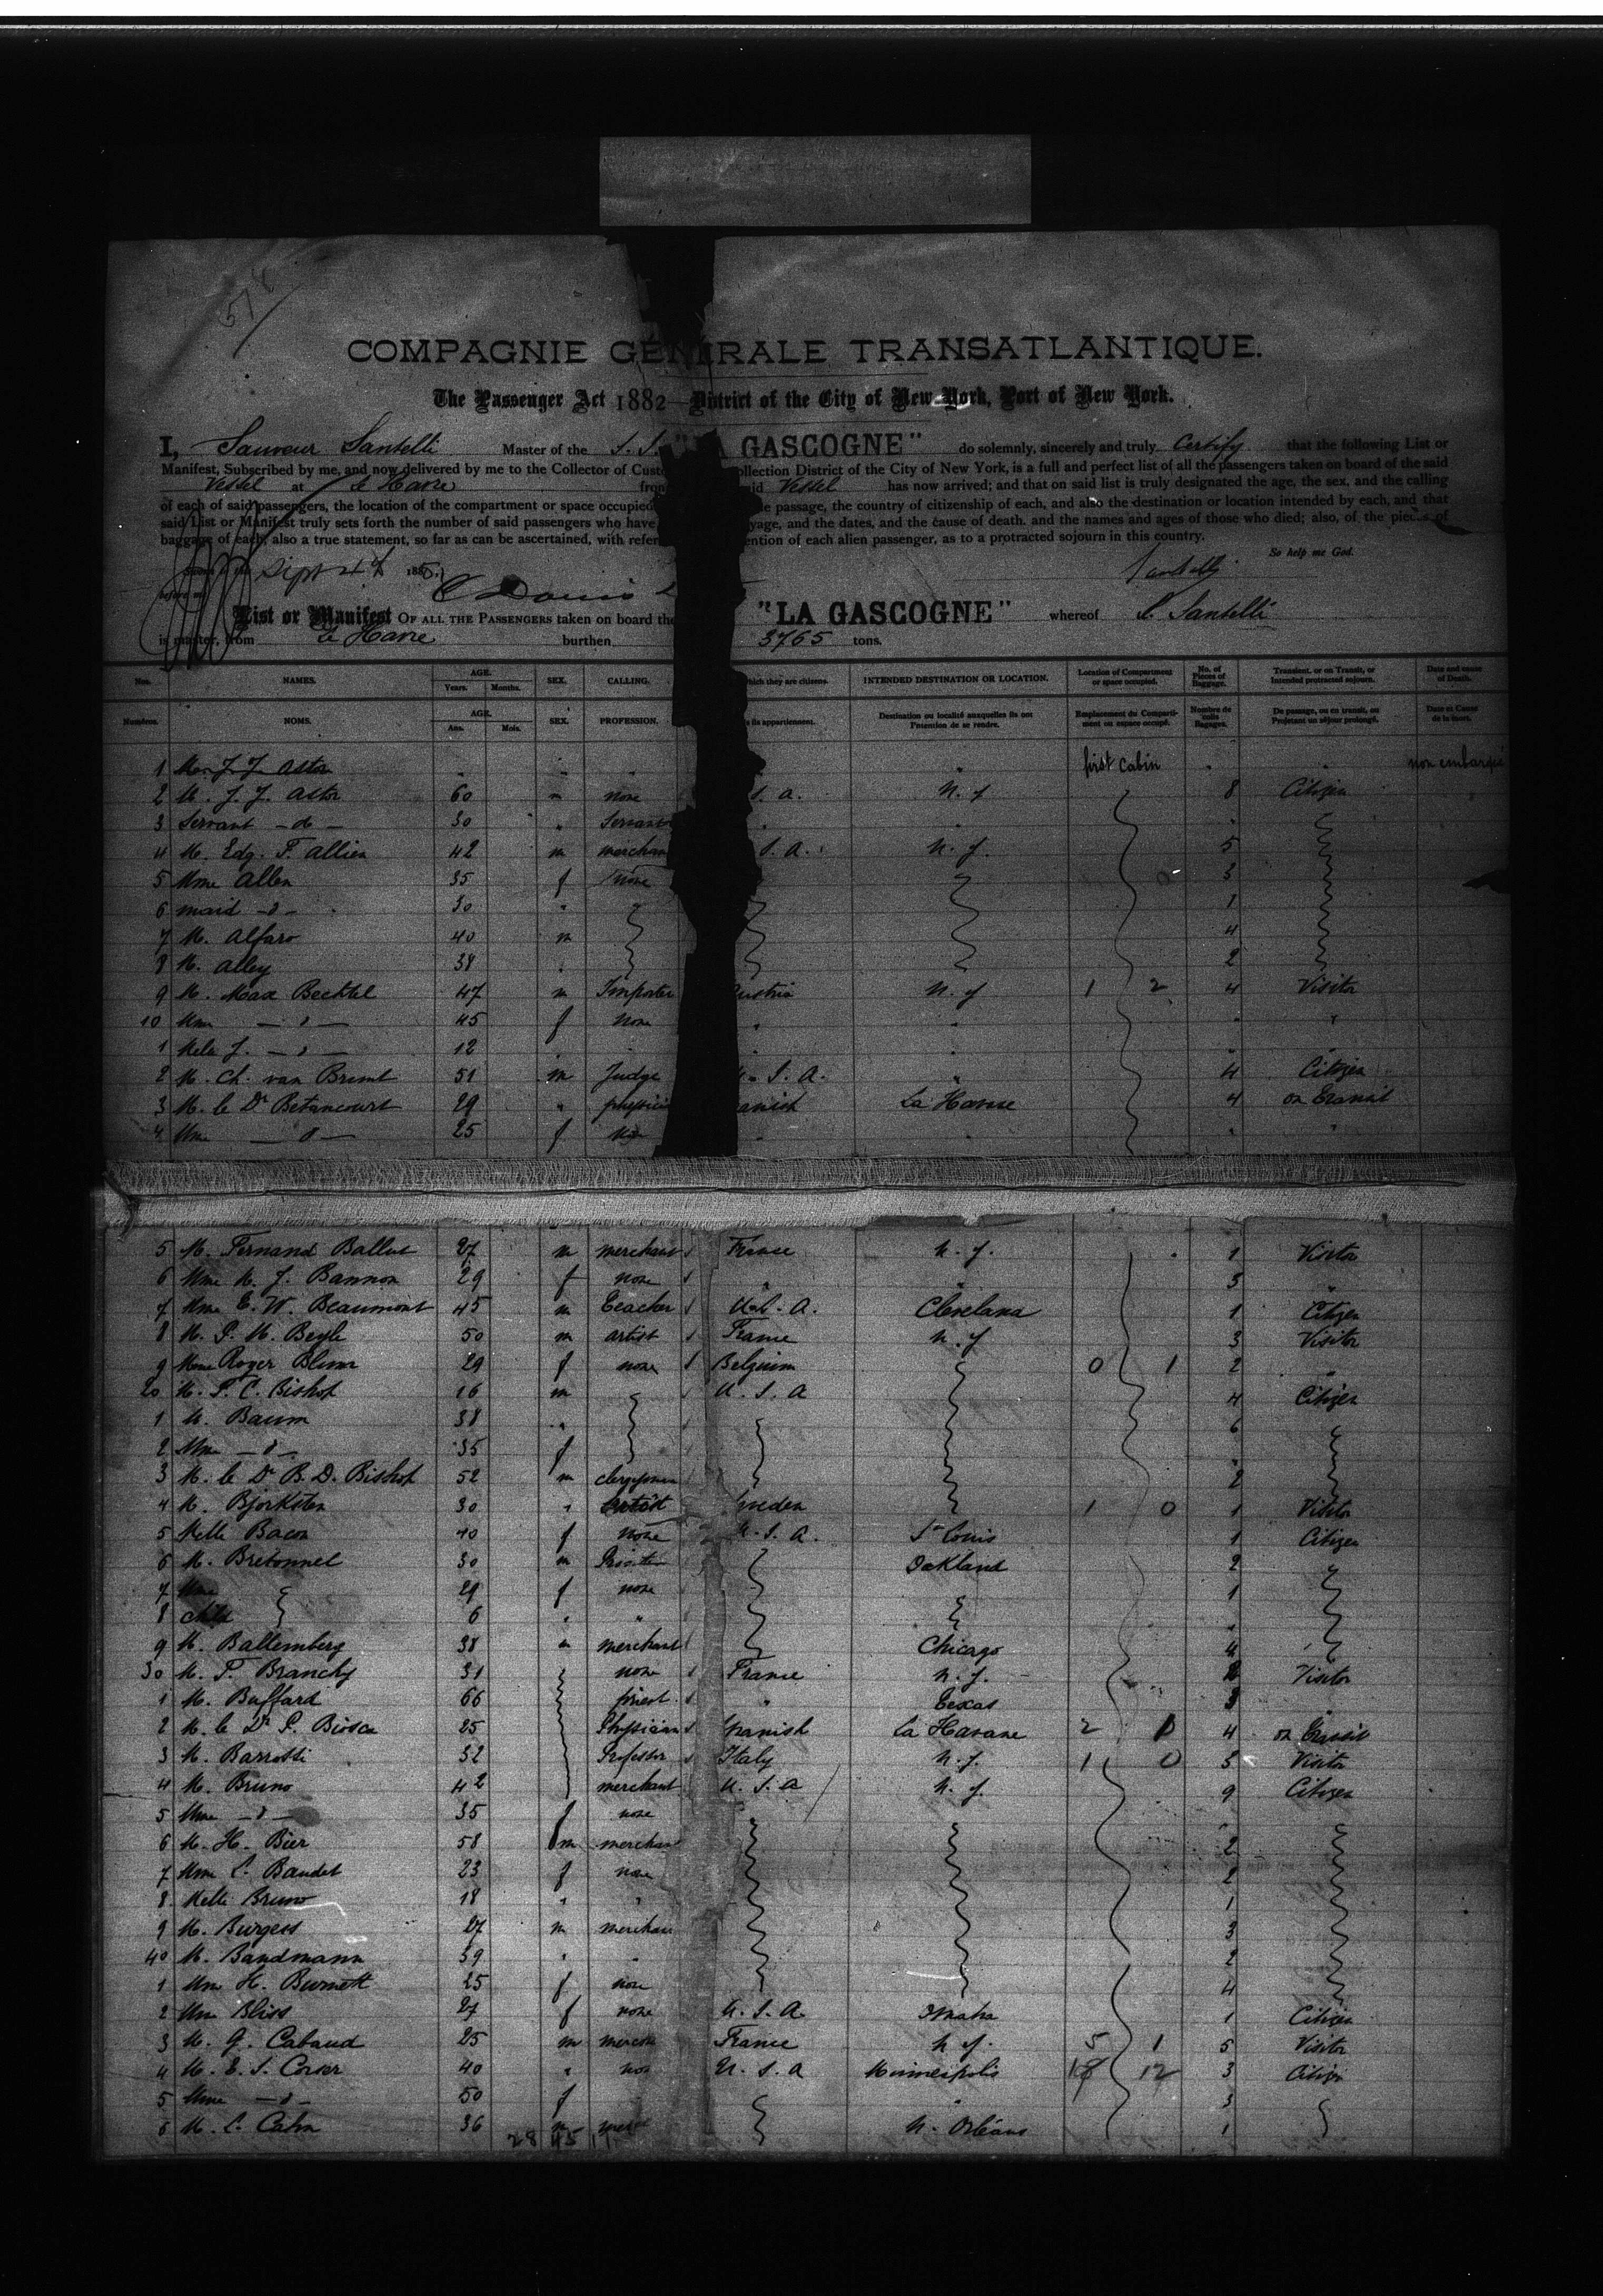 578
COMPAGNIE GÉNÉRALE TRANSATLANTIQUE.
The Passenger Act 1882 District of the City of New York, Port of New York.
I, Sauveur Santelli Master of the S. S. "LA GASCOGNE" do solemnly, sincerely and truly Certify that the following List or
Manifest, Subscribed by me, and now delivered by me to the Collector of Custo ollection District of the City of New York, is a full and perfect list of all the passengers taken on board of the said
Vessel at Le Havre from id Vessel has now arrived; and that on said list is truly designated the age, the sex, and the calling
of each of said passengers, the location of the compartment or space occupied e passage, the country of citizenship of each, and also the destination or location intended by each, and that
said List or Manifest truly sets forth the number of said passengers who have yage, and the dates, and the cause of death. and the names and ages of those who died; also, of the pieces of
baggage of each, also a true statement, so far as can be ascertained, with refer ention of each alien passenger, as to a protracted sojourn in this country.
So help me God.
Sept 188 Santelli
List or Manifest OF ALL THE PASSENGERS taken on board the "LA GASCOGNE" whereof S. Santelli
is master, from Le Havre burthen 3765 tons.
Nos. NAMES. AGE. Years. Months. SEX. CALLING. which they are citizens. INTENDED DESTINATION OR LOCATION. Location of Compartment or space occupied. No. of Pieces of Baggage. Transient, or on Transit, or Intended protracted sojourn. Date and cause of Death.
Numéros. NOMS. AGE. Ans. Mois. SEX. PROFESSION. ils appartiennent. Destination ou localité auxquelles ils ont l'intention de se rendre. Emplacement du Compartiment ou espace occupé. Nombre de colis Bagages. De passage, ou en transit, ou Projetant un séjour prolongé. Date et Cause de la mort.
1 J. J. Astor " " " " first Cabin " " non embarqué
2 M. J. J. Astor 60 m none S. A. N. Y 8 Citizen
3 Servant - do - 30 " Servant " "
4 M. Edg. F. Allien 42 m merchan S. A. N. Y. 5
5 Mme Allen 35 f none 0 3
6 maid - d - 30 " 1
7 M. Alfaro 40 m 4
8 M. Alley 38 " 2
9 M. Max Bechtel 47 m Importer ustria N. Y 1 2 4 Visitor
10 Mme - d - 45 f None " " " "
1 Melle J. - d - 12 " " " " "
2 M. Ch. van Brunt 51 m Judge U. S. A. " 4 Citizen
3 M. le Dr Betancourt 29 " physici anish La Havane 4 on Transit
4 Mme - d - 25 f " " " "
5 M. Fernand Ballus 27 m merchant France N. Y. 1 Visitor
6 Mme M. J. Bannon 29 f none " " 3 "
7 Mme E. W. Beaumont 45 m Teacher U. S. A. Cleveland 1 Citizen
8 M. P. M. Beyle 50 m artist France N. Y 3 Visitor
9 Mme Roger 29 f none Belgium 0 1 2 "
20 M. P. C. Bishop 16 m U. S. A 4 Citizen
1 M. Baum 38 " 6
2 Mme - d - 35 f "
3 M. le Dr B. D. Bishop 52 m clergyman 2
4 M. Bjorksten 30 " artist Sweden 1 0 1 Visitor
5 Melle Bacon 40 f none U. S. A. St Louis 1 Citizen
6 M. Bretonnel 30 m Oakland 2
7 Mme 29 f none 1
8 child 6 " " "
9 M. Ballemberg 38 m merchant Chicago 4
30 M. F. Branchy 31 none France N. Y. Visitor
1 M. Buffard 66 priest " Texas 3 "
2 M. le Dr P. Biosca 25 Physician Spanish La Havane 2 0 4 on Transit
3 M. Barrotti 32 Professor Italy N. Y. 1 0 5 Visitor
4 M. Bruno 42 merchant U. S. A N. Y. 9 Citizen
5 Mme - d - 35 f none "
6 M. H. Bier 58 m merchan 2
7 Mme C. Baudet 23 f none 2
8 Melle Bruno 18 " " 1
9 M. Burgess 27 m merchan 3
40 M. Bandmann 39 " " 2
1 Mme H. Burnett 25 f none 4
2 Mme Bliss 27 f none U. S. A. Omaha 1 Citizen
3 M. G. Cabaud 25 m merch France N. Y. 5 1 5 Visitor
4 M. E. S. Corser 40 " non U. S. A Minneapolis 18 12 3 Citizen
5 Mme - d - 50 f " 3
6 M. C. Cahn 36 m merc N. Orléans 1
28 45 11